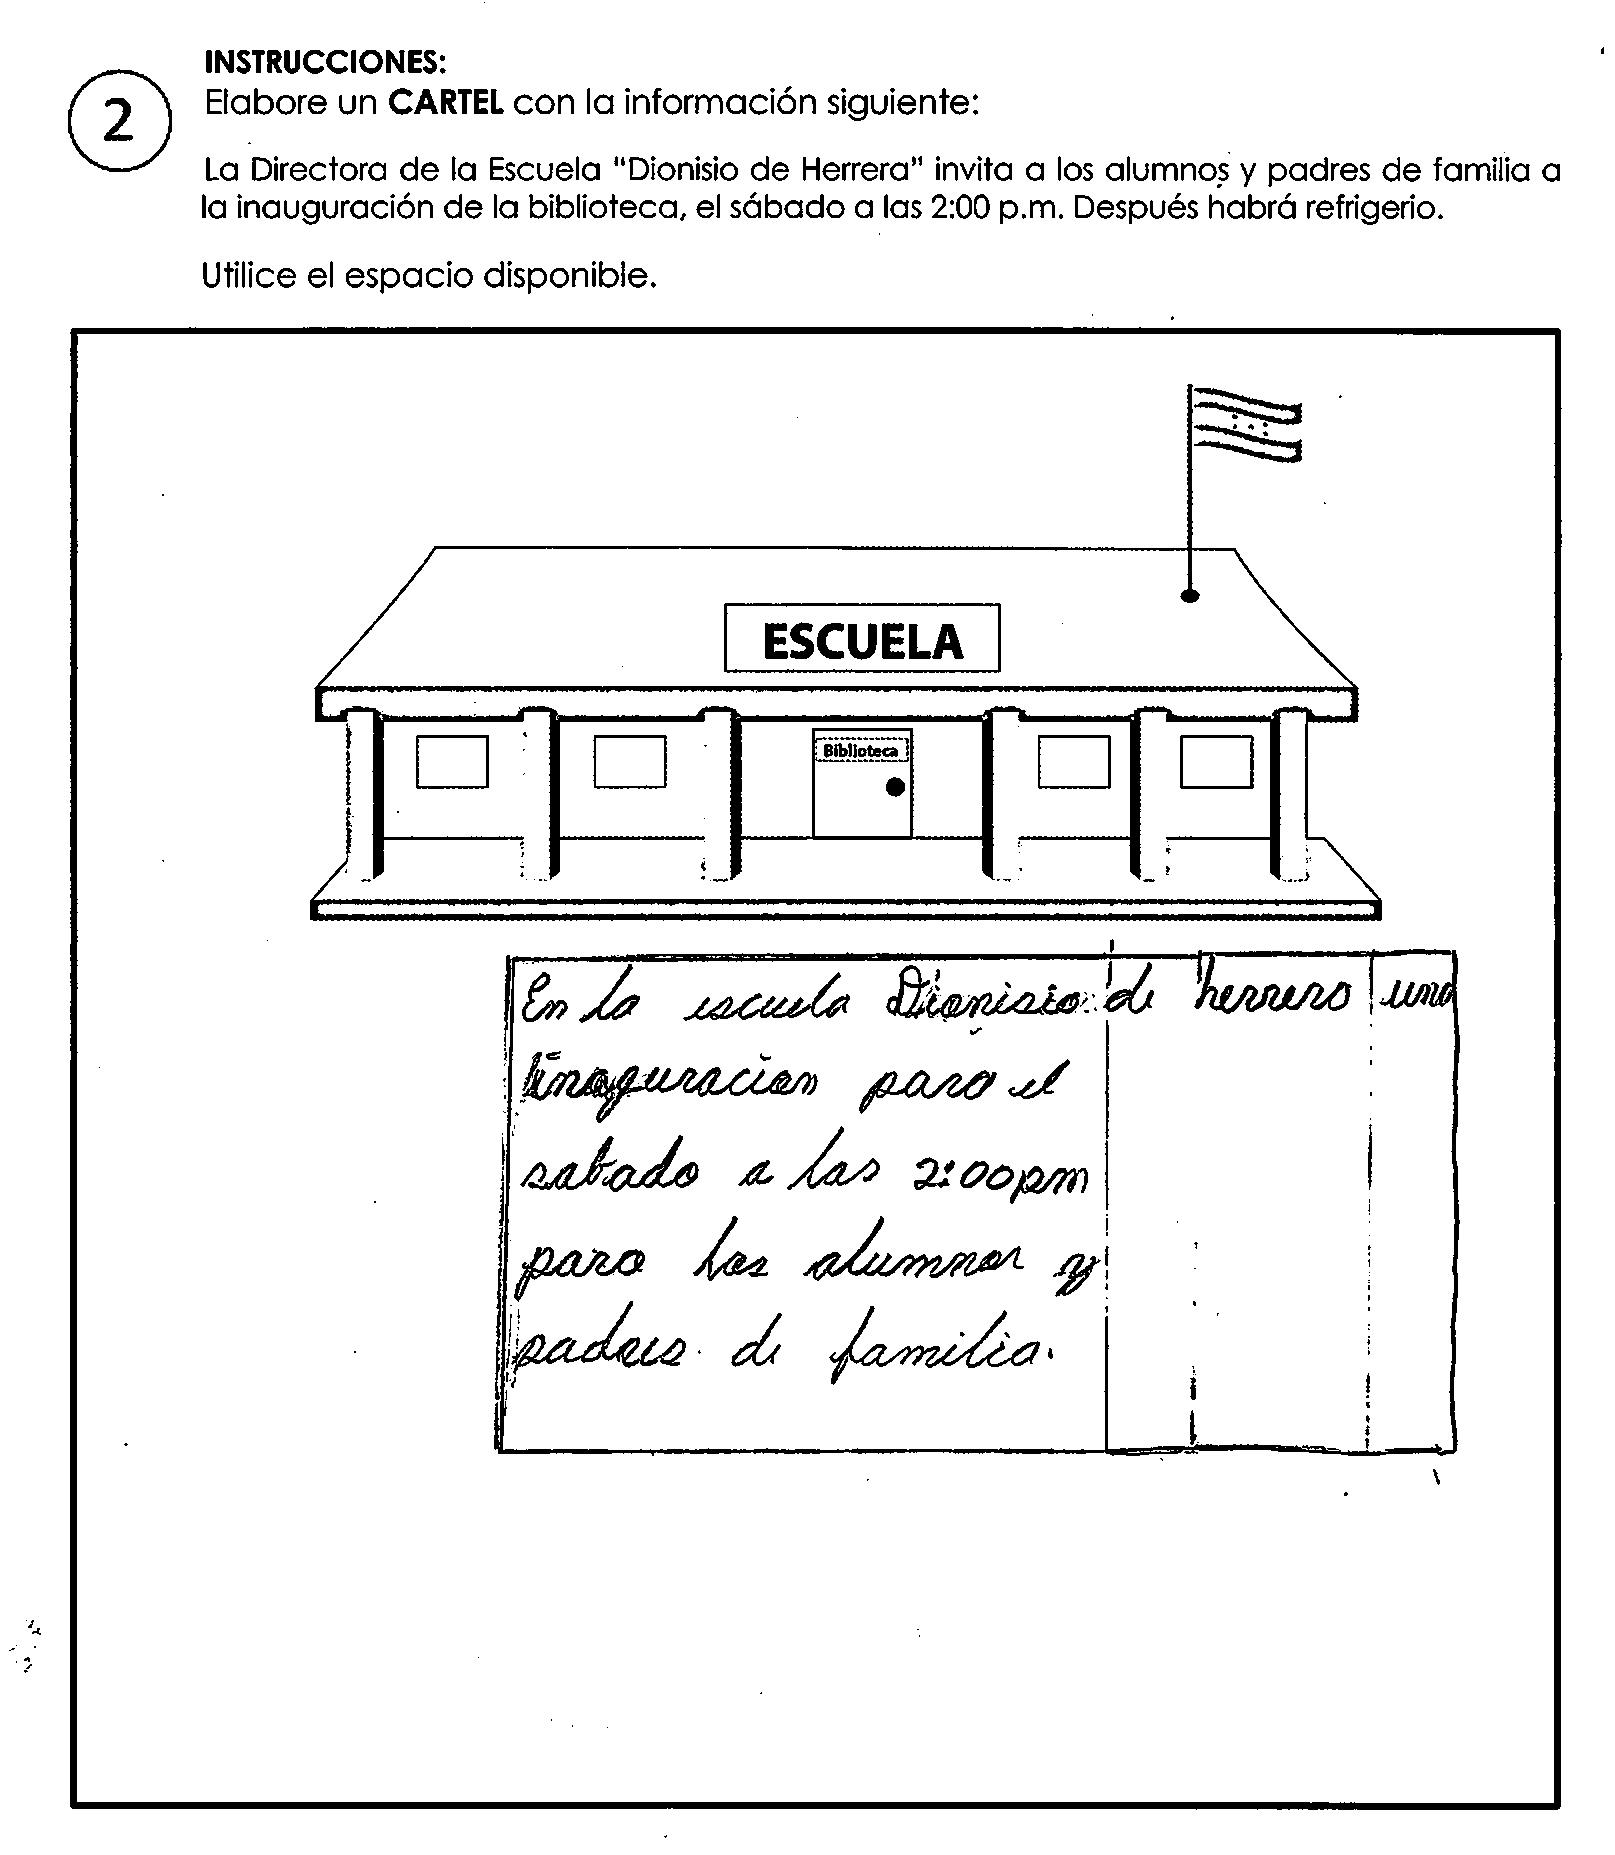 INSTRUCCIONES:
2
Elabore un CARTEL con la información siguiente:
La Directora de la Escuela "Dionisio de Herrera" invita a los alumnos y padres de familia a
la inauguración de la biblioteca, el sábado a las 2:00 p.m. Después habrá refrigerio.
Utilice el espacio disponible.
ESCUELA
Biblioteca
En la escuela Dionisio de herrero una
inaguracion para el
sabado a las 2:00pm
para los alumnos y
padres de familia.